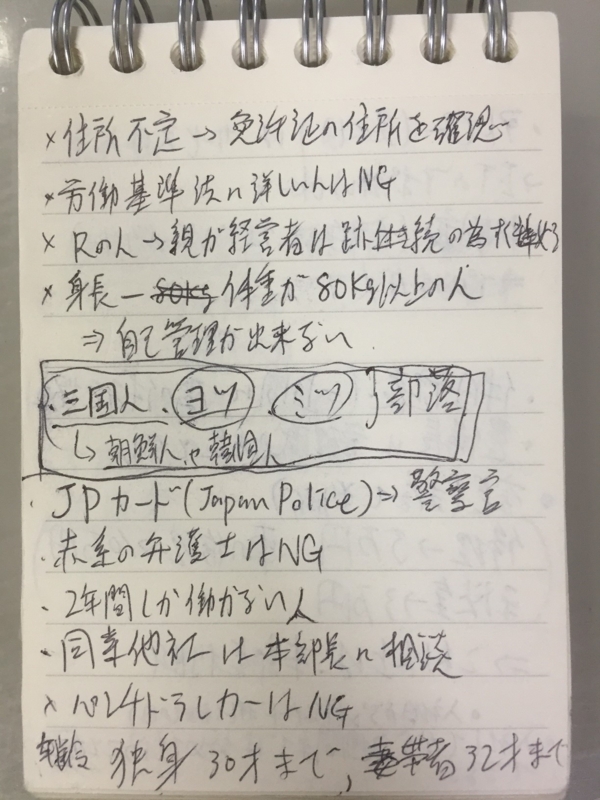 ×住所不定→免許証の住所を確認
×労働基準法に詳しい人はNG
×Rの人→親が経営者は跡継続の為
×身長ー80kg体重が80kg以上の人
⇒自己管理が出来ない.
・三国人、ヨツ、ミツ 部落
↳朝鮮人や韓国人
・JPカード(Japan Police)⇒警察官
・赤系の弁護士はNG
・2年間しか働かない人
・同業他社は本部長に相談
×ペンドラレカーはNG
年齢 独身30才まで,妻帯者32才まで